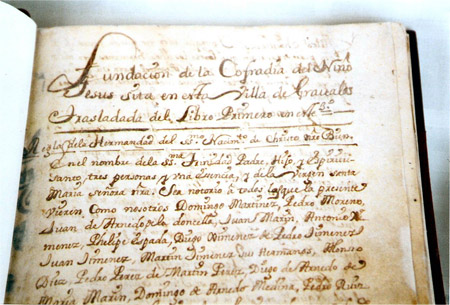 Fundacion de la Cofradia del Niño
Jesus sita en esta Villa de Graualos
Trasladada del Libro Primero en este
Regla de la Hermandad del ss.mo Nacim.to de Christo nro Bien
En el nombre de la ss.ma Trinidad Padre, Hijo, y Espiritu
santo tres personas y vna Esencia, y de la virgen santa
Maria señora nra. Sea notorio a todos los que la presente
vieren Como nosotros Domingo Martinez, Pedro Moreno,
Juan de Arnedo de la doncella, Juan Marin, Antonio Xi
menez, Phelipe Espada, Diego Ximenez de Pedro Jimenez
Juan Jimenez, Martin Jimenez sus Hermanos, Alonso
Diez, Pedro Perez de Martin Perez, Diego de Arnedo de
Maria Marin, Domingo de Arnedo Medina, Pedro Ruiz